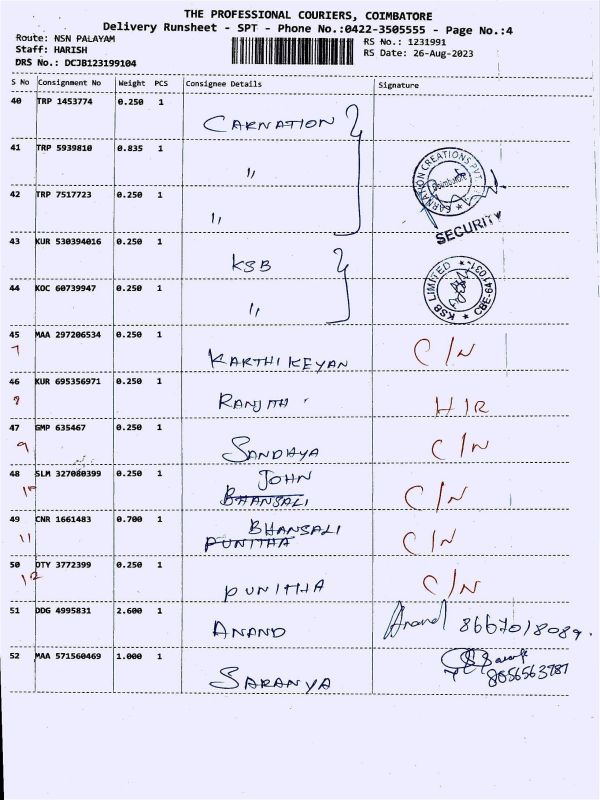 THE PROFESSIONAL COURIERS, COIMBATORE
Delivery Runsheet - SPT - Phone No.:0422-3505555 - Page No.:4
Route: NSN PALAYAM
RS No.: 1231991
Staff: HARISH
RS Date: 26-Aug-2023
DRS No.: DCJB123199104
S No Consignment No Weight PCS Consignee Details Signature
40 TRP 1453774 0.250 1 CARNATION
41 TRP 5939810 0.835 1 "
CARNATION CREATIONS PVT. Coimbatore
42 TRP 7517723 0.250 1 "
SECURITY
43 KUR 530394016 0.250 1 KSB
44 KOC 60739947 0.250 1 "
KSB LIMITED ★ CBE-641031 ★
45 MAA 297206534 0.250 1 KARTHIKEYAN C/N
7
46 KUR 695356971 0.250 1 RANJITH H/R
8
47 GMP 635467 0.250 1 SANDHYA C/N
9
48 SLM 327080399 0.250 1 JOHN
10 BHANSALI C/N
49 CNR 1661483 0.700 1 BHANSALI
11 PUNITHA C/N
50 DTY 3772399 0.250 1 PUNITHA C/N
12
51 DDG 4995831 2.600 1 ANAND Anand 8667018089.
52 MAA 571560469 1.000 1 SARANYA 8056563787